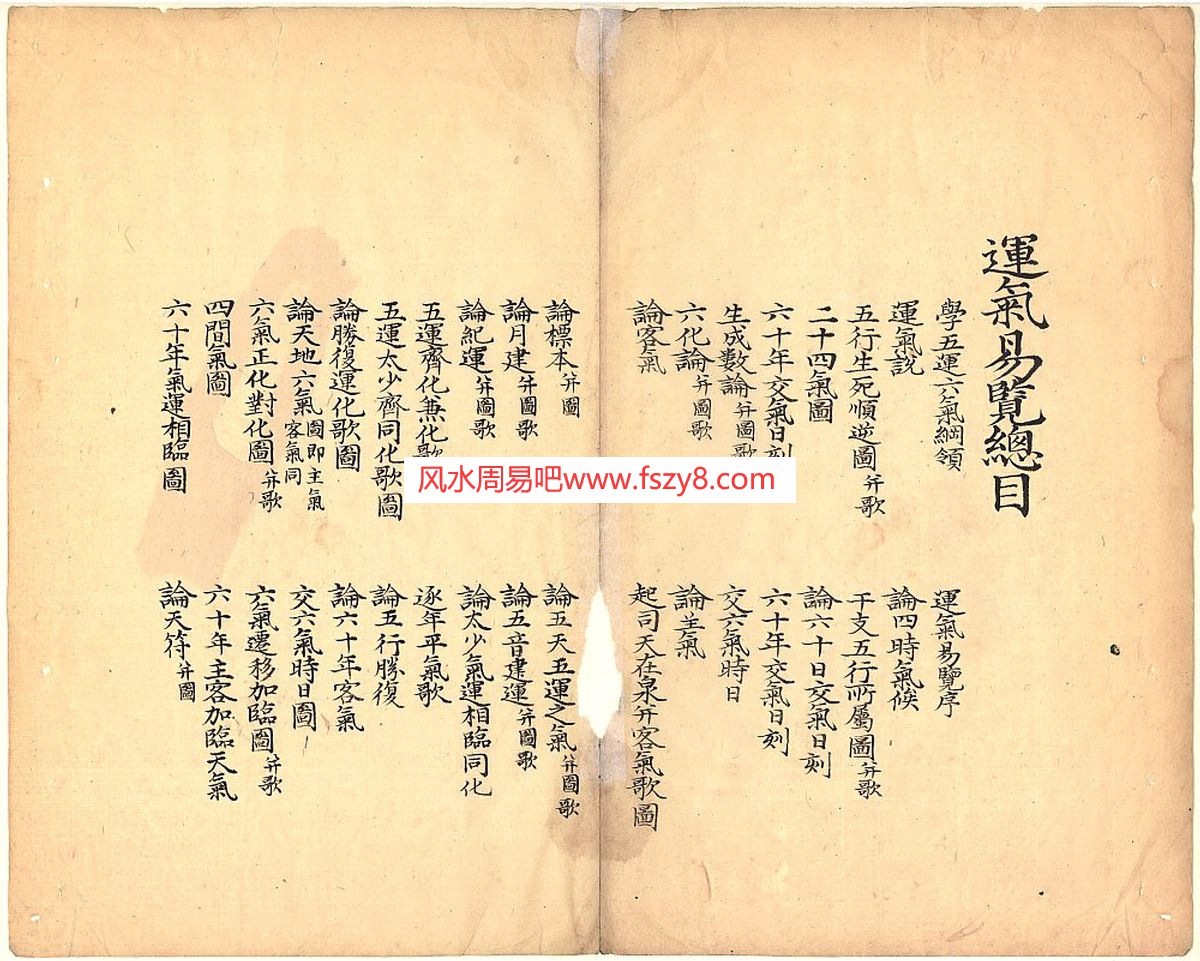 運氣易覽總目
學五運六氣綱領
運氣易覽序
運氣說
論四時氣候
五行生死順逆圖并歌
干支五行所屬圖并歌
二十四氣圖
論六十日交氣日刻
六十年交氣日刻
六十年交氣日刻
生成數論并圖歌
交六氣時日
六化論并圖歌
論主氣
論客氣
起司天在泉并客氣歌圖
論標本并圖
論五天五運之氣并圖歌
論月建并圖歌
論五音建運并圖歌
論紀運并圖歌
論太少氣運相臨同化
五運齊化兼化歌
逐年平氣歌
五運太少齊同化歌圖
論五行勝復
論勝復運化歌圖
論六十年客氣
論天地六氣圖即主氣客氣同
交六氣時日圖
六氣正化對化圖并歌
六氣遷移加臨圖并歌
四間氣圖
六十年主客加臨天氣
六十年氣運相臨圖
論天符并圖
风水周易吧www.fszy8.com